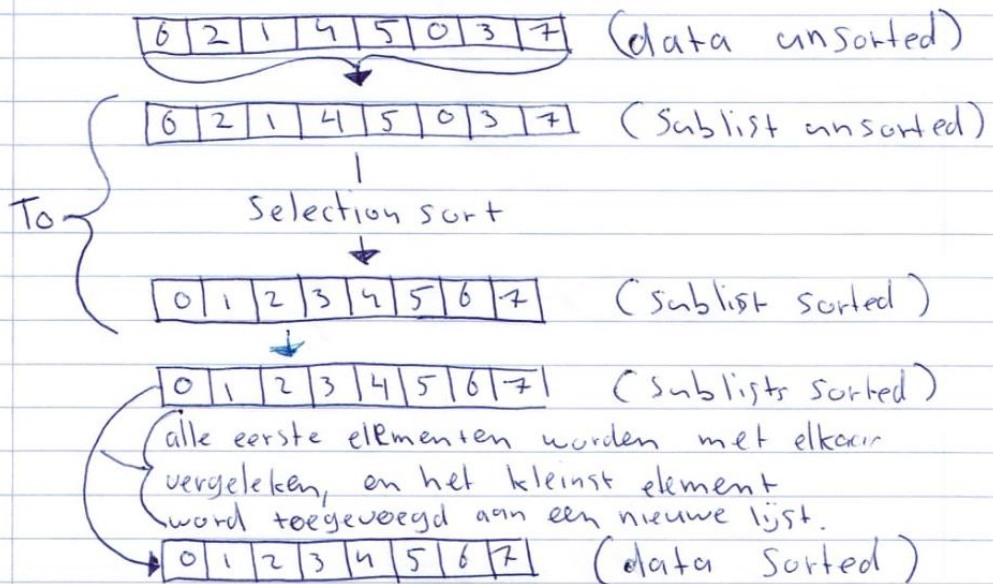 6 2 1 4 5 0 3 7 (data unsorted)
6 2 1 4 5 0 3 7 (Sublist unsorted)
T0
Selection sort
0 1 2 3 4 5 6 7 (sublist sorted)
0 1 2 3 4 5 6 7 (sublists sorted)
alle eerste elementen worden met elkaar
vergeleken, en het kleinst element
word toegevoegd aan een nieuwe lijst.
0 1 2 3 4 5 6 7 (data Sorted)